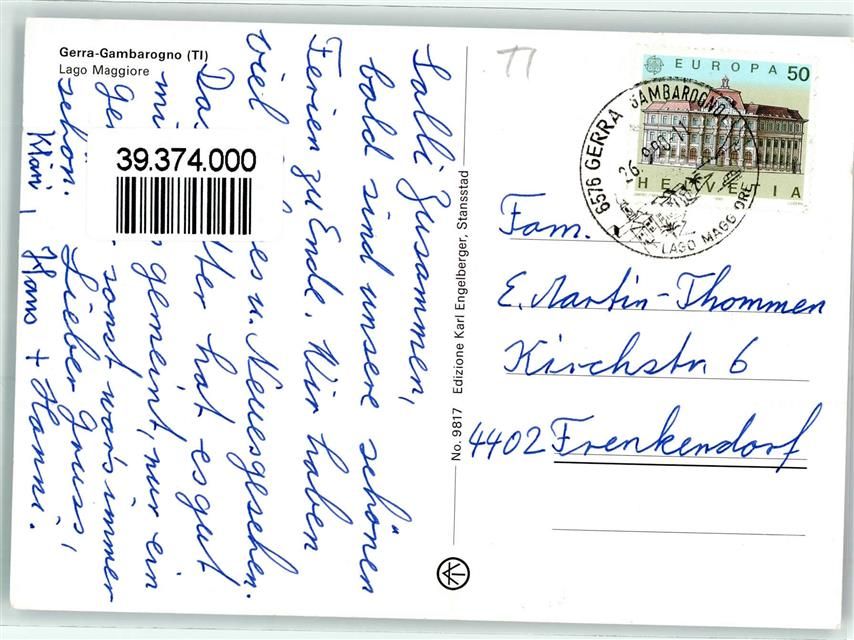 Gerra-Gambarogno (TI)
Lago Maggiore
Salli Zusammen,
bald sind unsere schönen
Ferien zu Ende. Wir haben
viel es u. Neues gesehen.
Das ter hat es gut
mi gemeint, nur ein
Ge sonst war's immer
schön. Lieber Gruss,
Märi, Hans + Hanni.
39.374.000
No. 9817 Edizione Karl Engelberger, Stansstad
TI
EUROPA 50
HELVETIA
6576 GERRA (GAMBAROGNO)
26.-9.90-17
LAGO MAGGIORE
Fam.
E. Martin-Thommen
Kirchstr. 6
4402 Frenkendorf